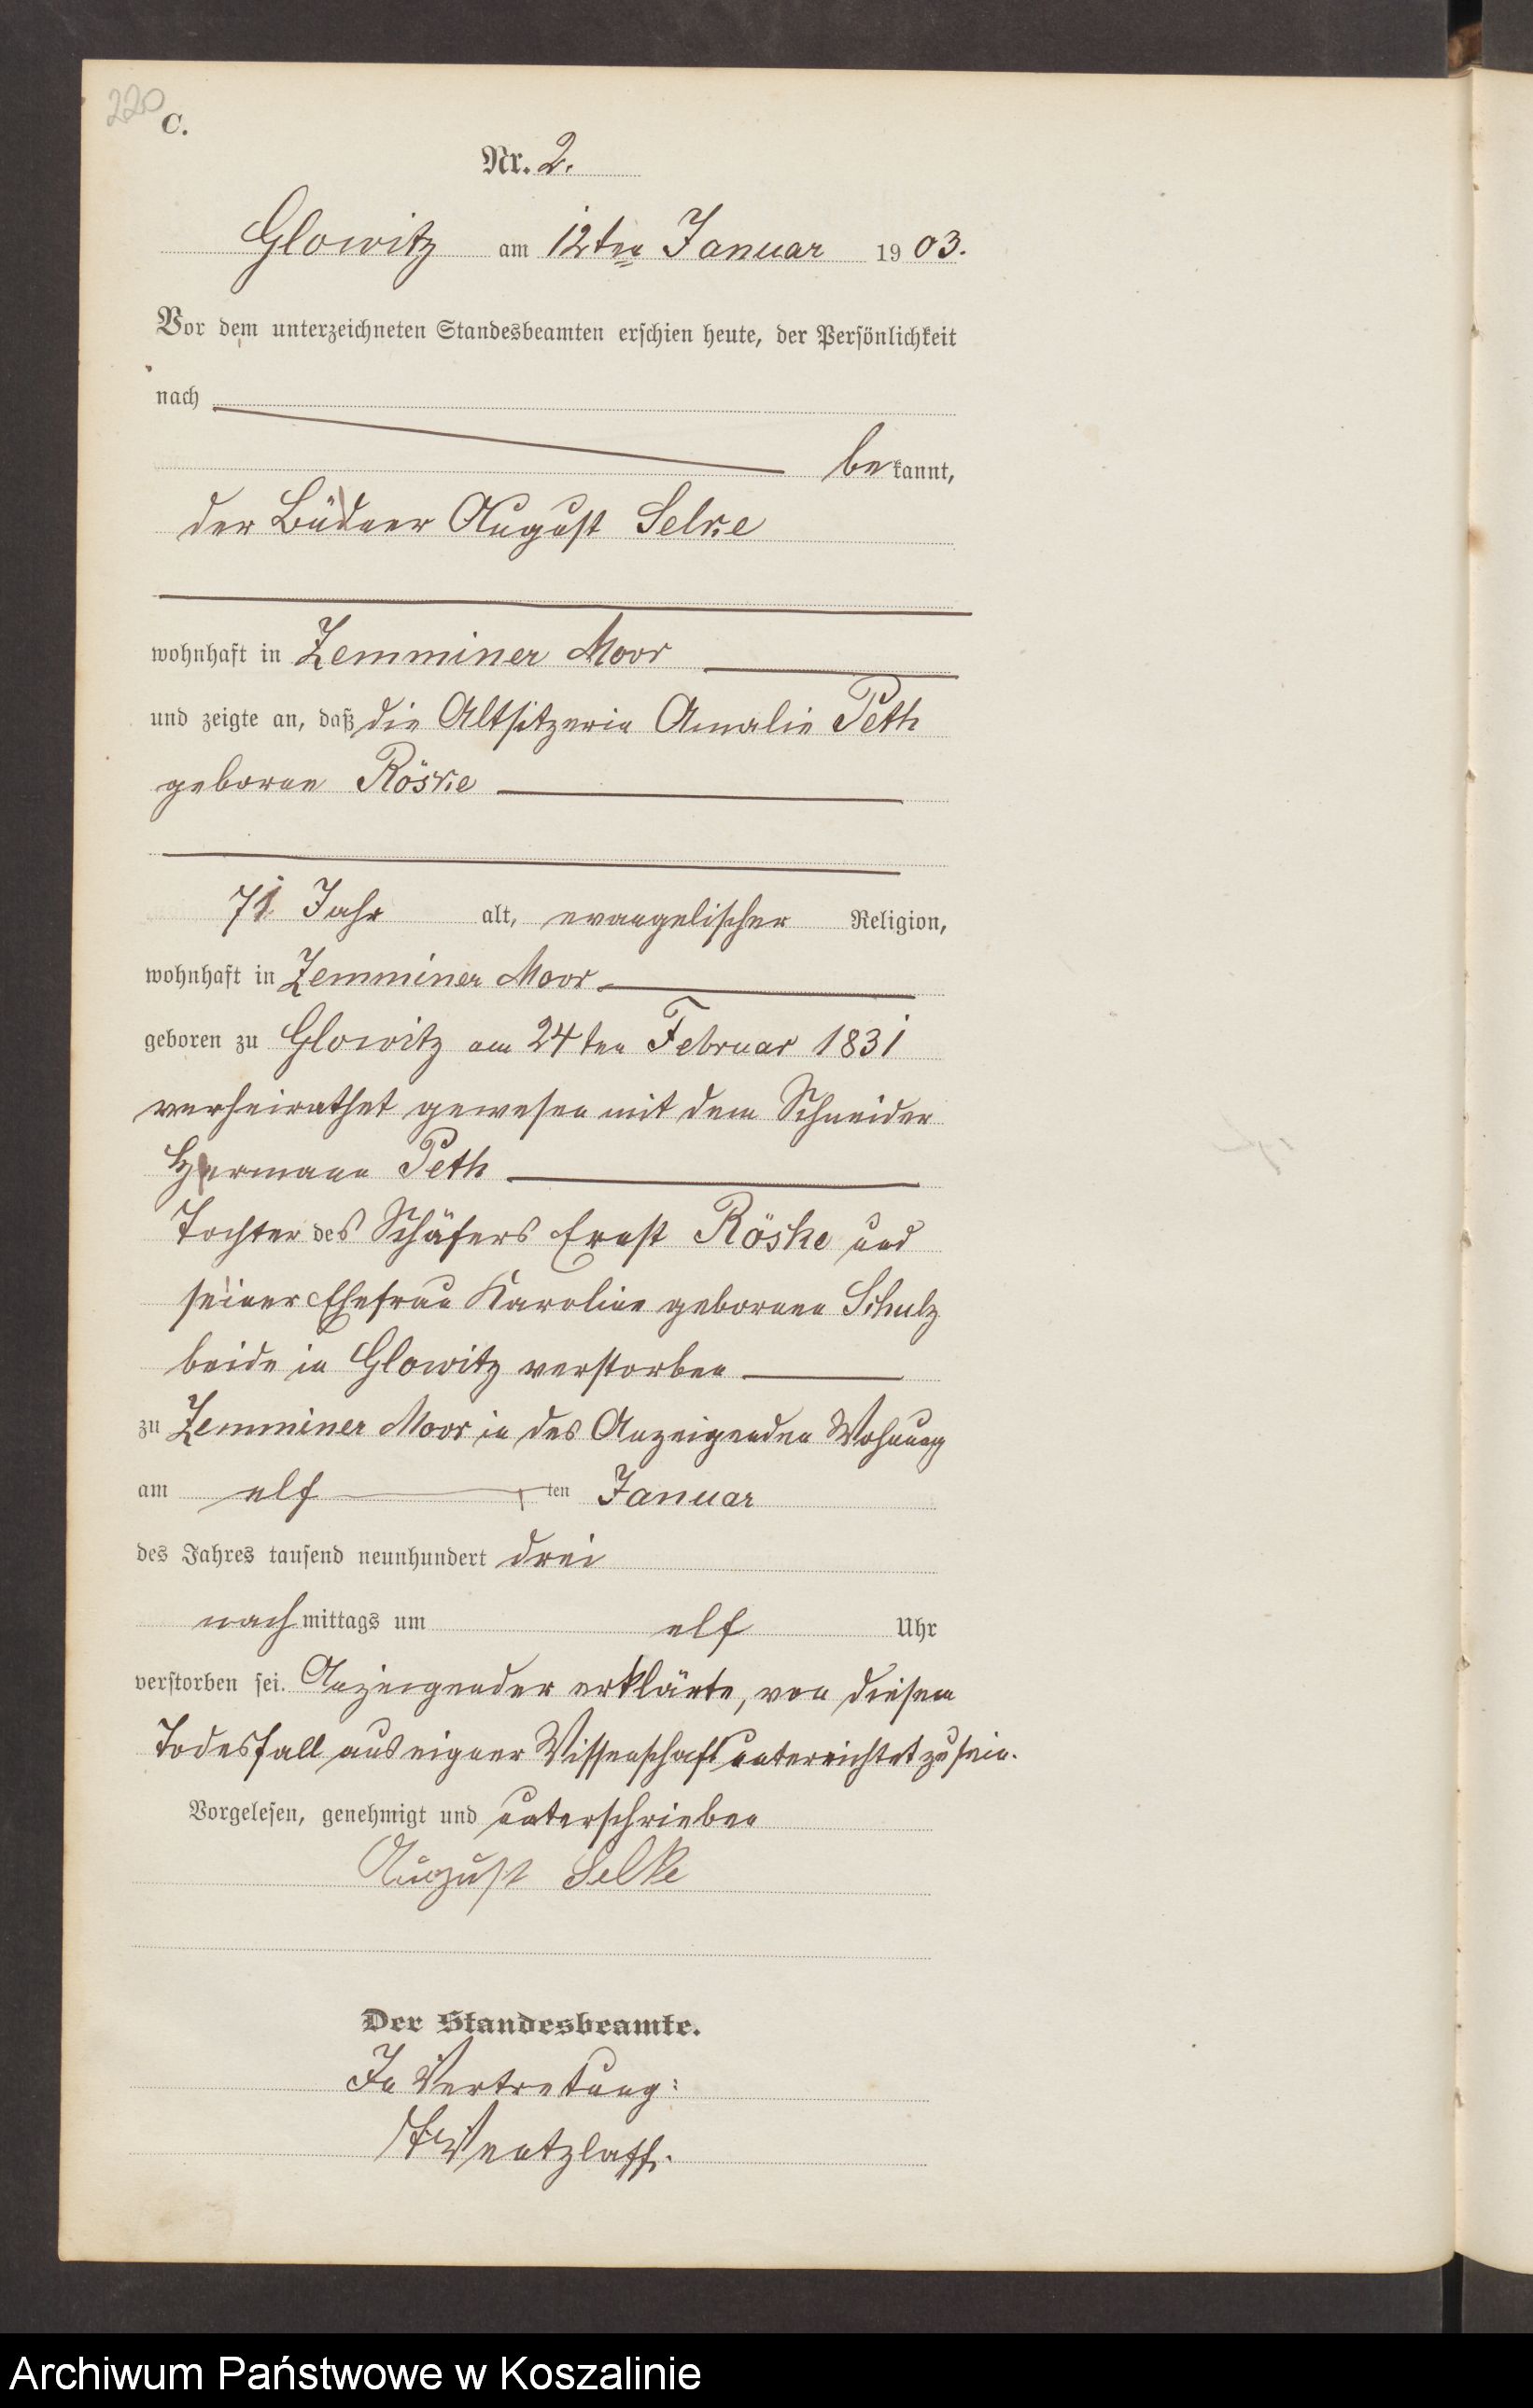 220
C.
Nr. 2.
Glowitz am 12ten Januar 1903.
Vor dem unterzeichneten Standesbeamten erschien heute, der Persönlichkeit
nach
bekannt,
der Büdner August Selke
wohnhaft in Zemminer Moor
und zeigte an, daß die Altsitzerin Amalie Peth
geborne Röske
71 Jahr alt, evangelischer Religion,
wohnhaft in Zemminer Moor
geboren zu Glowitz am 24ten Februar 1831
verheirathet gewesen mit dem Schneider
Hermann Peth
Tochter des Schäfers Ernst Röske und
seiner Ehefrau Karoline gebornen Schulz
beide in Glowitz verstorben
zu Zemminer Moor in des Anzeigenden Wohnung
am elf ten Januar
des Jahres tausend neunhundert drei
nachmittags um elf Uhr
verstorben sei. Anzeigender erklärte, von diesem
Todesfall aus eigner Wissenschaft unterrichtet zu sein.
Vorgelesen, genehmigt und unterschrieben
August Selke
Der Standesbeamte.
In Vertretung:
Wentzlaff.
Archiwum Państwowe w Koszalinie